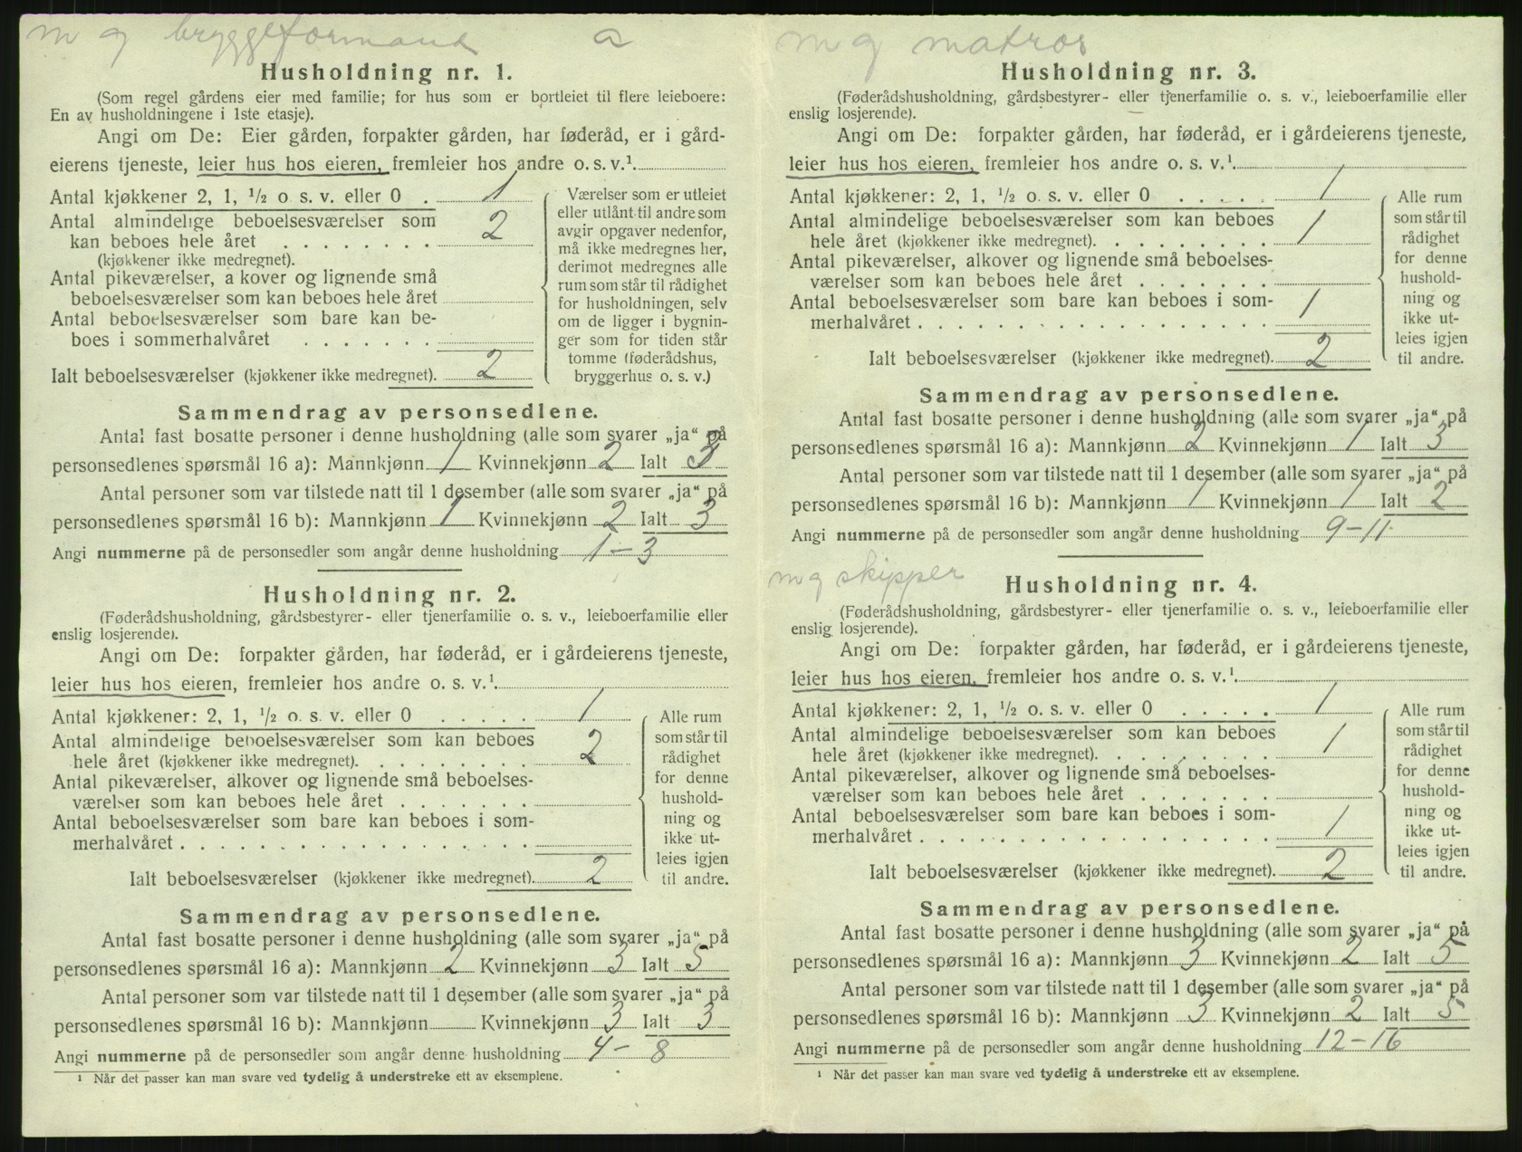 m g bryggeformand a
Husholdning nr. 1.
(Som regel gårdens eier med familie; for hus som er bortleiet til flere leieboere:
En av husholdningene i 1ste etasje).
Angi om De: Eier gården, forpakter gården, har føderåd, er i gård-
eierens tjeneste, leier hus hos eieren, fremleier hos andre o. s. v.¹
Antal kjøkkener 2, 1, ½ o. s. v. eller 0 . 1
Antal almindelige beboelsesværelser som
kan beboes hele året . . . . . . . . 2
(kjøkkener ikke medregnet).
Antal pikeværelser, a kover og lignende små
beboelsesværelser som kan beboes hele året
Antal beboelsesværelser som bare kan be-
boes i sommerhalvåret . . . . . . .
Ialt beboelsesværelser (kjøkkener ikke medregnet). 2
Værelser som er utleiet
eller utlånt til andre som
avgir opgaver nedenfor,
må ikke medregnes her,
derimot medregnes alle
rum som står til rådighet
for husholdningen, selv
om de ligger i bygnin-
ger som for tiden står
tomme (føderådshus,
bryggerhus o. s. v.)
Sammendrag av personsedlene.
Antal fast bosatte personer i denne husholdning (alle som svarer „ja“ på
personsedlenes spørsmål 16 a): Mannkjønn 1 Kvinnekjønn 2 Ialt 3
Antal personer som var tilstede natt til 1 desember (alle som svarer „ja“ på
personsedlenes spørsmål 16 b): Mannkjønn 1 Kvinnekjønn 2 Ialt 3
Angi nummerne på de personsedler som angår denne husholdning 1 – 3
Husholdning nr. 2.
(Føderådshusholdning, gårdsbestyrer- eller tjenerfamilie o. s. v., leieboerfamilie eller
enslig losjerende).
Angi om De: forpakter gården, har føderåd, er i gårdeierens tjeneste,
leier hus hos eieren, fremleier hos andre o. s. v.¹
Antal kjøkkener: 2, 1, ½ o. s. v. eller 0 . . . . . 1
Antal almindelige beboelsesværelser som kan beboes
hele året (kjøkkener ikke medregnet). . . . . . . . . 2
Antal pikeværelser, alkover og lignende små beboelses-
værelser som kan beboes hele året . . . . . . .
Antal beboelsesværelser som bare kan beboes i som-
merhalvåret . . . . . . . . . . . . . . . . . .
Ialt beboelsesværelser (kjøkkener ikke medregnet). 2
Alle rum
som står til
rådighet
for denne
hushold-
ning og
ikke ut-
leies igjen
til andre.
Sammendrag av personsedlene.
Antal fast bosatte personer i denne husholdning (alle som svarer „ja“ på
personsedlenes spørsmål 16 a): Mannkjønn 2 Kvinnekjønn 3 Ialt 5
Antal personer som var tilstede natt til 1 desember (alle som svarer „ja“ på
personsedlenes spørsmål 16 b): Mannkjønn Kvinnekjønn 3 Ialt 3
Angi nummerne på de personsedler som angår denne husholdning 4 – 8
¹ Når det passer kan man svare ved tydelig å understreke ett av eksemplene.
m g matros
Husholdning nr. 3.
(Føderådshusholdning, gårdsbestyrer- eller tjenerfamilie o. s. v., leieboerfamilie eller
enslig losjerende).
Angi om De: forpakter gården, har føderåd, er i gårdeierens tjeneste,
leier hus hos eieren, fremleier hos andre o. s. v.¹
Antal kjøkkener: 2, 1, ½ o. s. v. eller 0 . . . . . 1
Antal almindelige beboelsesværelser som kan beboes
hele året (kjøkkener ikke medregnet). . . . . . . . . 1
Antal pikeværelser, alkover og lignende små beboelses-
værelser som kan beboes hele året . . . . . . .
Antal beboelsesværelser som bare kan beboes i som-
merhalvåret . . . . . . . . . . . . . . . . . . 1
Ialt beboelsesværelser (kjøkkener ikke medregnet). 2
Alle rum
som står til
rådighet
for denne
hushold-
ning og
ikke ut-
leies igjen
til andre.
Sammendrag av personsedlene.
Antal fast bosatte personer i denne husholdning (alle som svarer „ja“ på
personsedlenes spørsmål 16 a): Mannkjønn 2 Kvinnekjønn 1 Ialt 3
Antal personer som var tilstede natt til 1 desember (alle som svarer „ja“ på
personsedlenes spørsmål 16 b): Mannkjønn 1 Kvinnekjønn 1 Ialt 2
Angi nummerne på de personsedler som angår denne husholdning 9 – 11
m g skipper
Husholdning nr. 4.
(Føderådshusholdning, gårdsbestyrer- eller tjenerfamilie o. s. v., leieboerfamilie eller
enslig losjerende).
Angi om De: forpakter gården, har føderåd, er i gårdeierens tjeneste,
leier hus hos eieren, fremleier hos andre o. s. v.¹
Antal kjøkkener: 2, 1, ½ o. s. v. eller 0 . . . . . 1
Antal almindelige beboelsesværelser som kan beboes
hele året (kjøkkener ikke medregnet). . . . . . . . . 1
Antal pikeværelser, alkover og lignende små beboelses-
værelser som kan beboes hele året . . . . . . .
Antal beboelsesværelser som bare kan beboes i som-
merhalvåret . . . . . . . . . . . . . . . . . . 1
Ialt beboelsesværelser (kjøkkener ikke medregnet). 2
Alle rum
som står til
rådighet
for denne
hushold-
ning og
ikke ut-
leies igjen
til andre.
Sammendrag av personsedlene.
Antal fast bosatte personer i denne husholdning (alle som svarer „ja“ på
personsedlenes spørsmål 16 a): Mannkjønn 3 Kvinnekjønn 2 Ialt 5
Antal personer som var tilstede natt til 1 desember (alle som svarer „ja“ på
personsedlenes spørsmål 16 b): Mannkjønn 3 Kvinnekjønn 2 Ialt 5
Angi nummerne på de personsedler som angår denne husholdning 12 – 16
¹ Når det passer kan man svare ved tydelig å understreke ett av eksemplene.